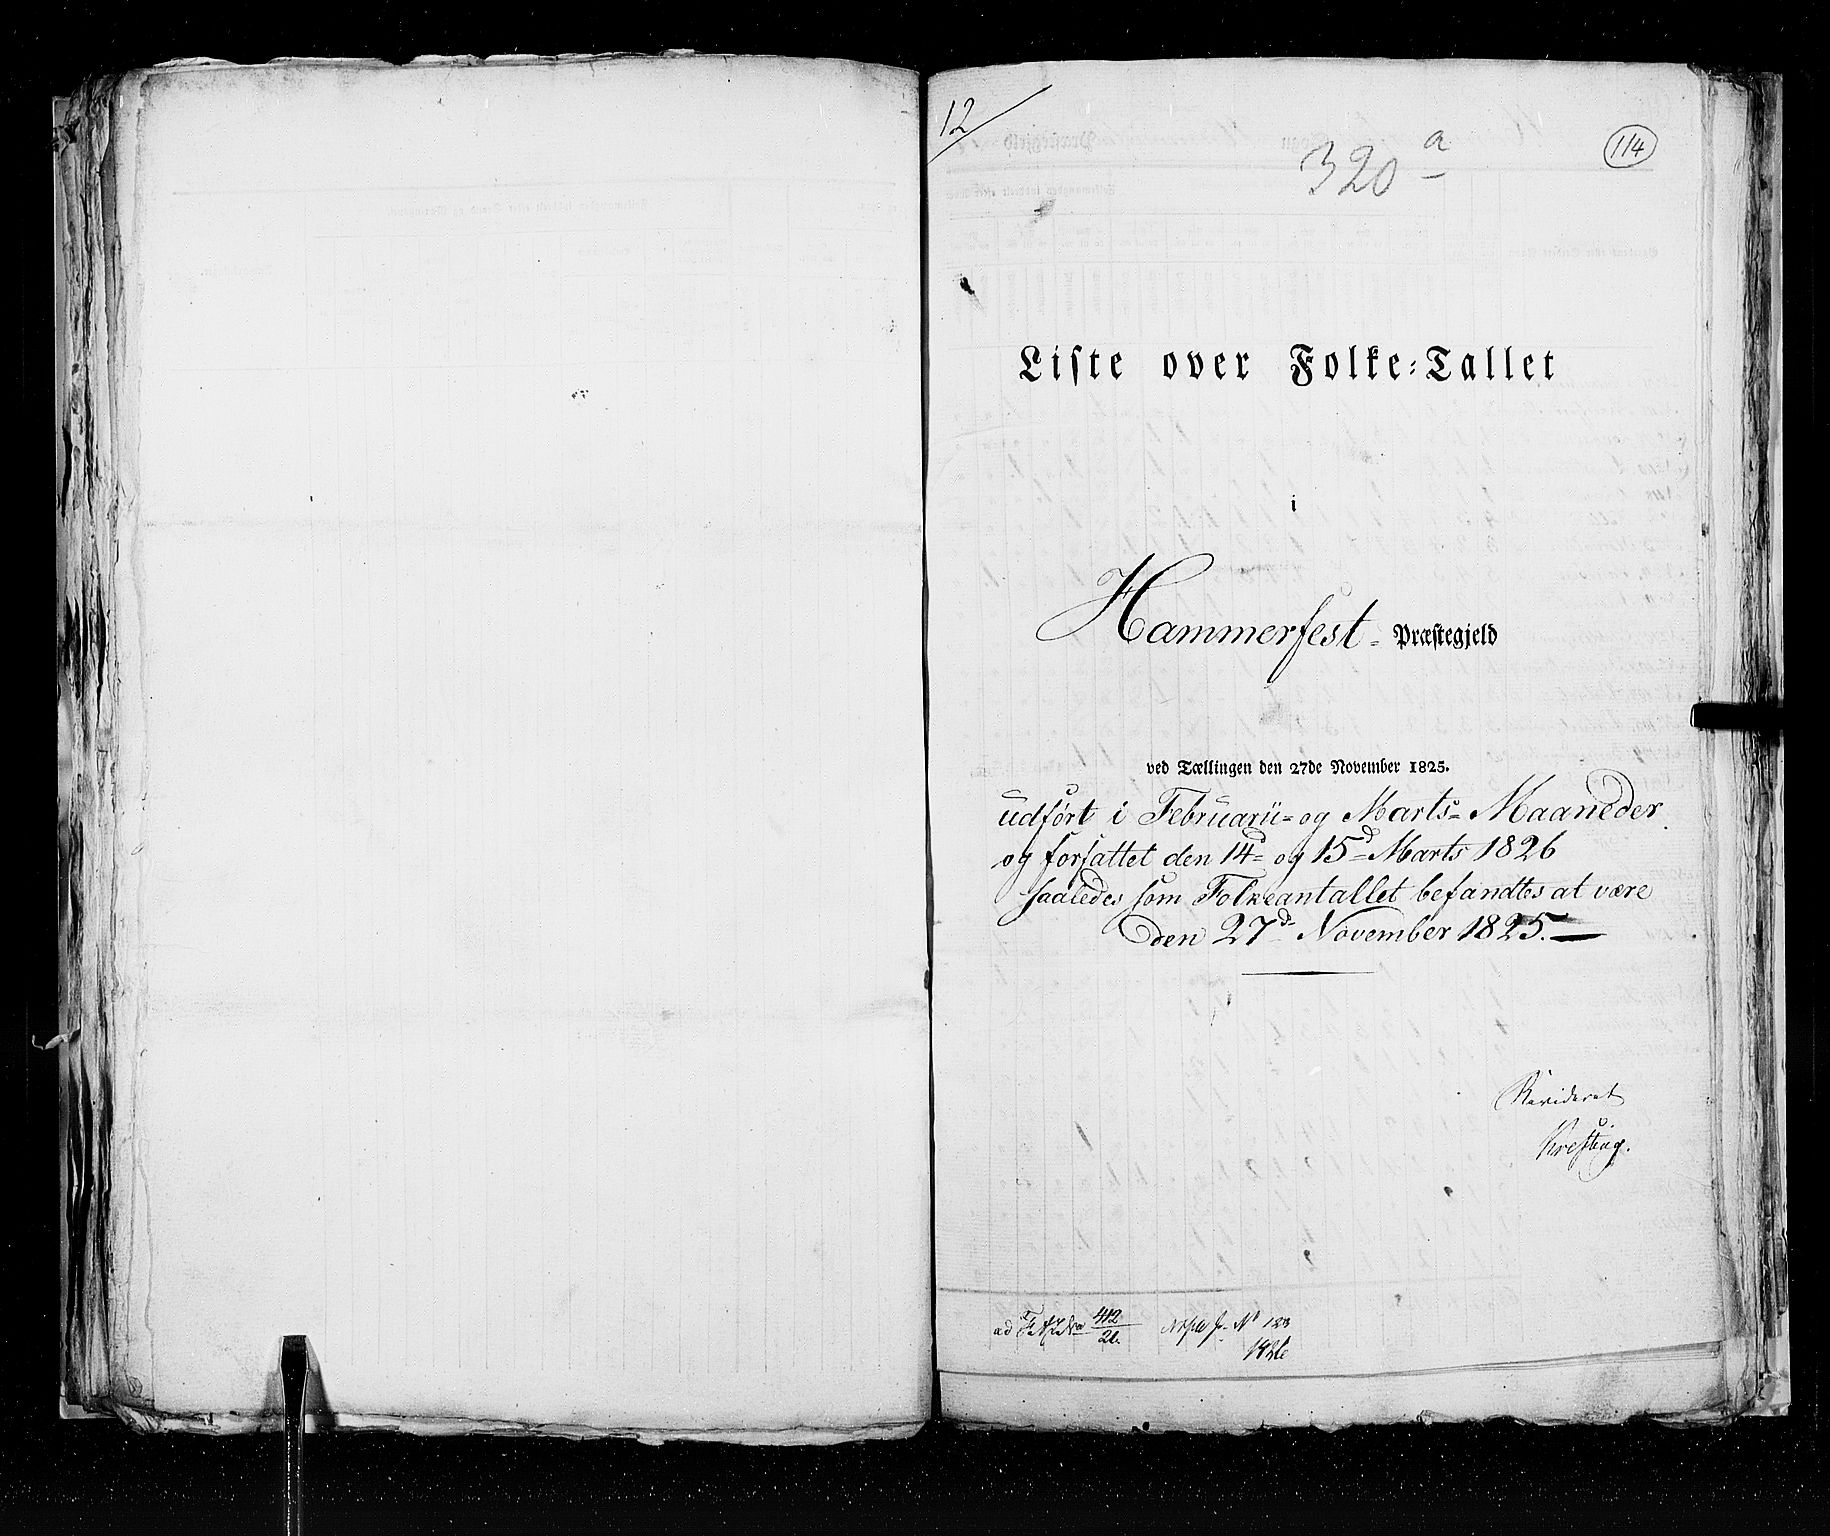 12
320 a
114
Liste over Folke-Tallet
i
Hammerfest - Præstegjeld
ved Tællingen den 27de November 1825.
udført i Februarii- og Marts- Maaneder
og forfattet den 14d og 15d Marts 1826
saaledes som Folkeantallet befandtes at være
den 27d November 1825. —
Revideret
Kresting.
ad 412
26.
No 183
1826